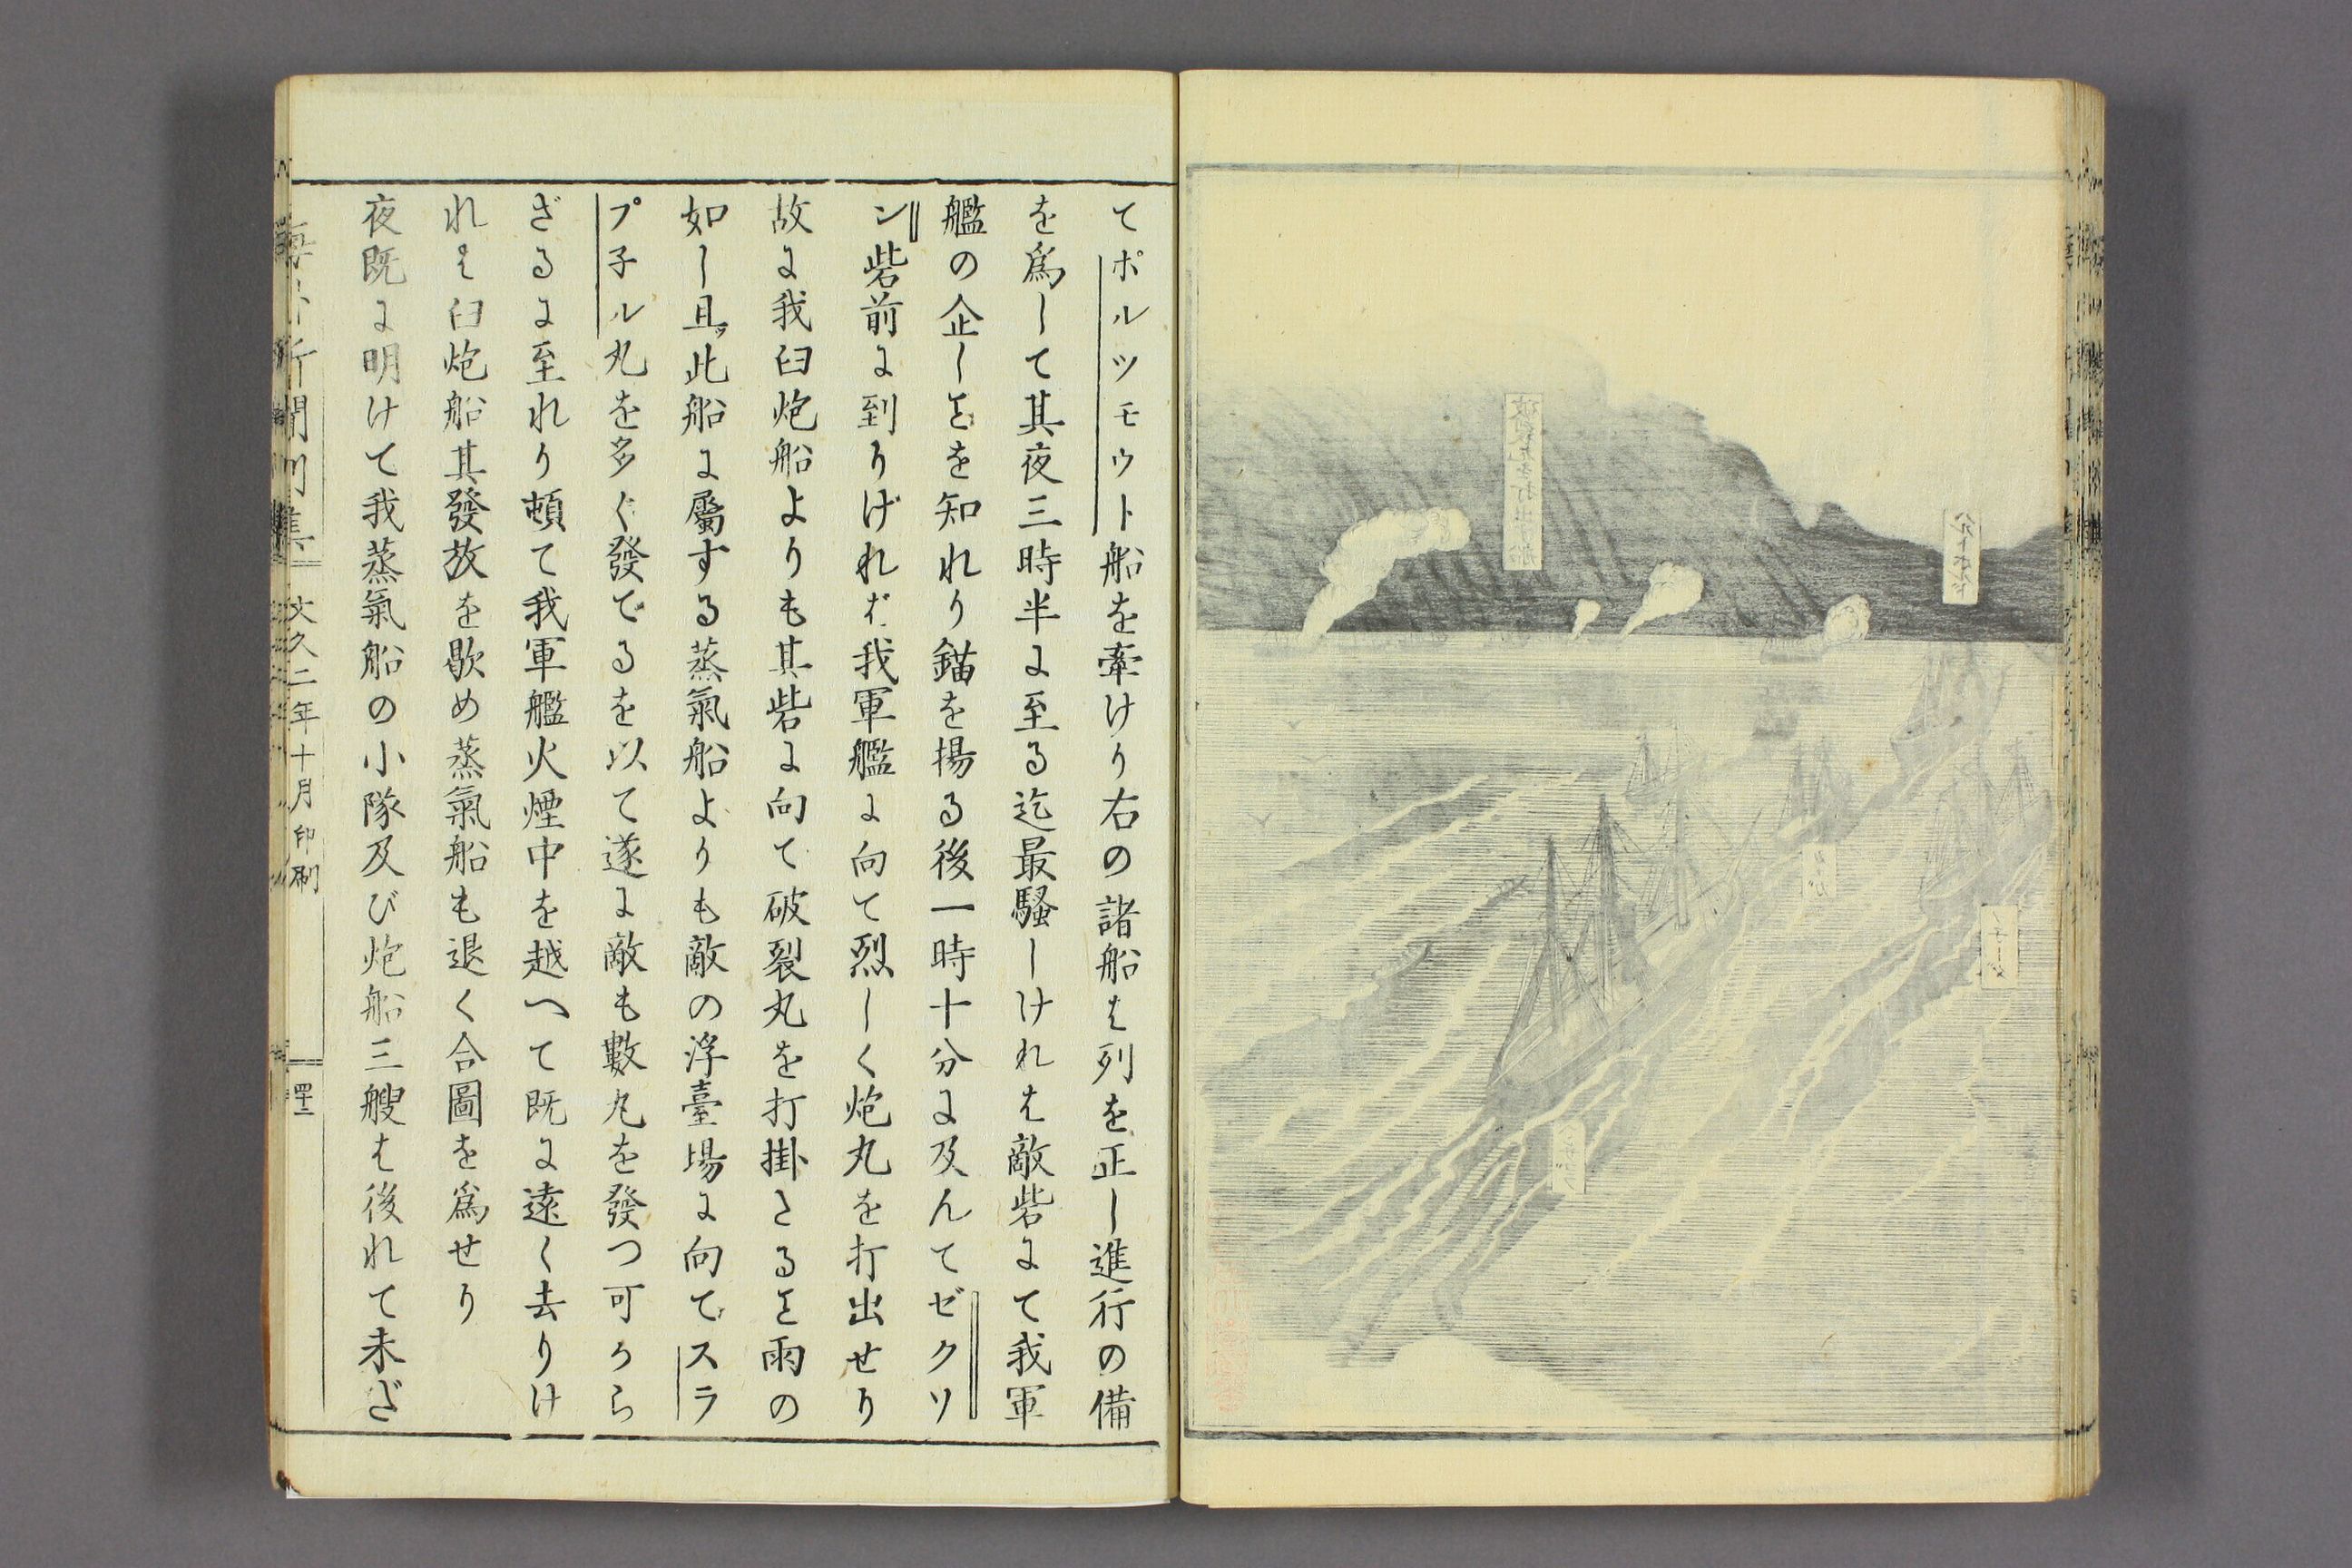 てポルツモウト船を牽けり右の諸船は列を正し進行の備
を爲して其夜三時半に至る迄最騒しけれは敵砦にて我軍
艦の企しことを知れり錨を揚る後一時十分に及んてゼクソ
ン砦前に到りげれば我軍艦に向て烈しく炮丸を打出せり
故に我臼炮船よりも其砦に向て破裂丸を打掛さること雨の
如し且ッ此船に屬する蒸氣船よりも敵の浮臺場に向てスラ
プ子ル丸を多ぐ發でるを以て遂に敵も數丸を發つ可から
ざるに至れり頓て我軍艦火煙中を越へて既に遠く去りけ
れは臼炮船其發放を歇め蒸氣船も退く合圖を爲せり
夜既に明けて我蒸氣船の小隊及び炮船三艘は後れて未ざ
文久二年十月印刷
四十二